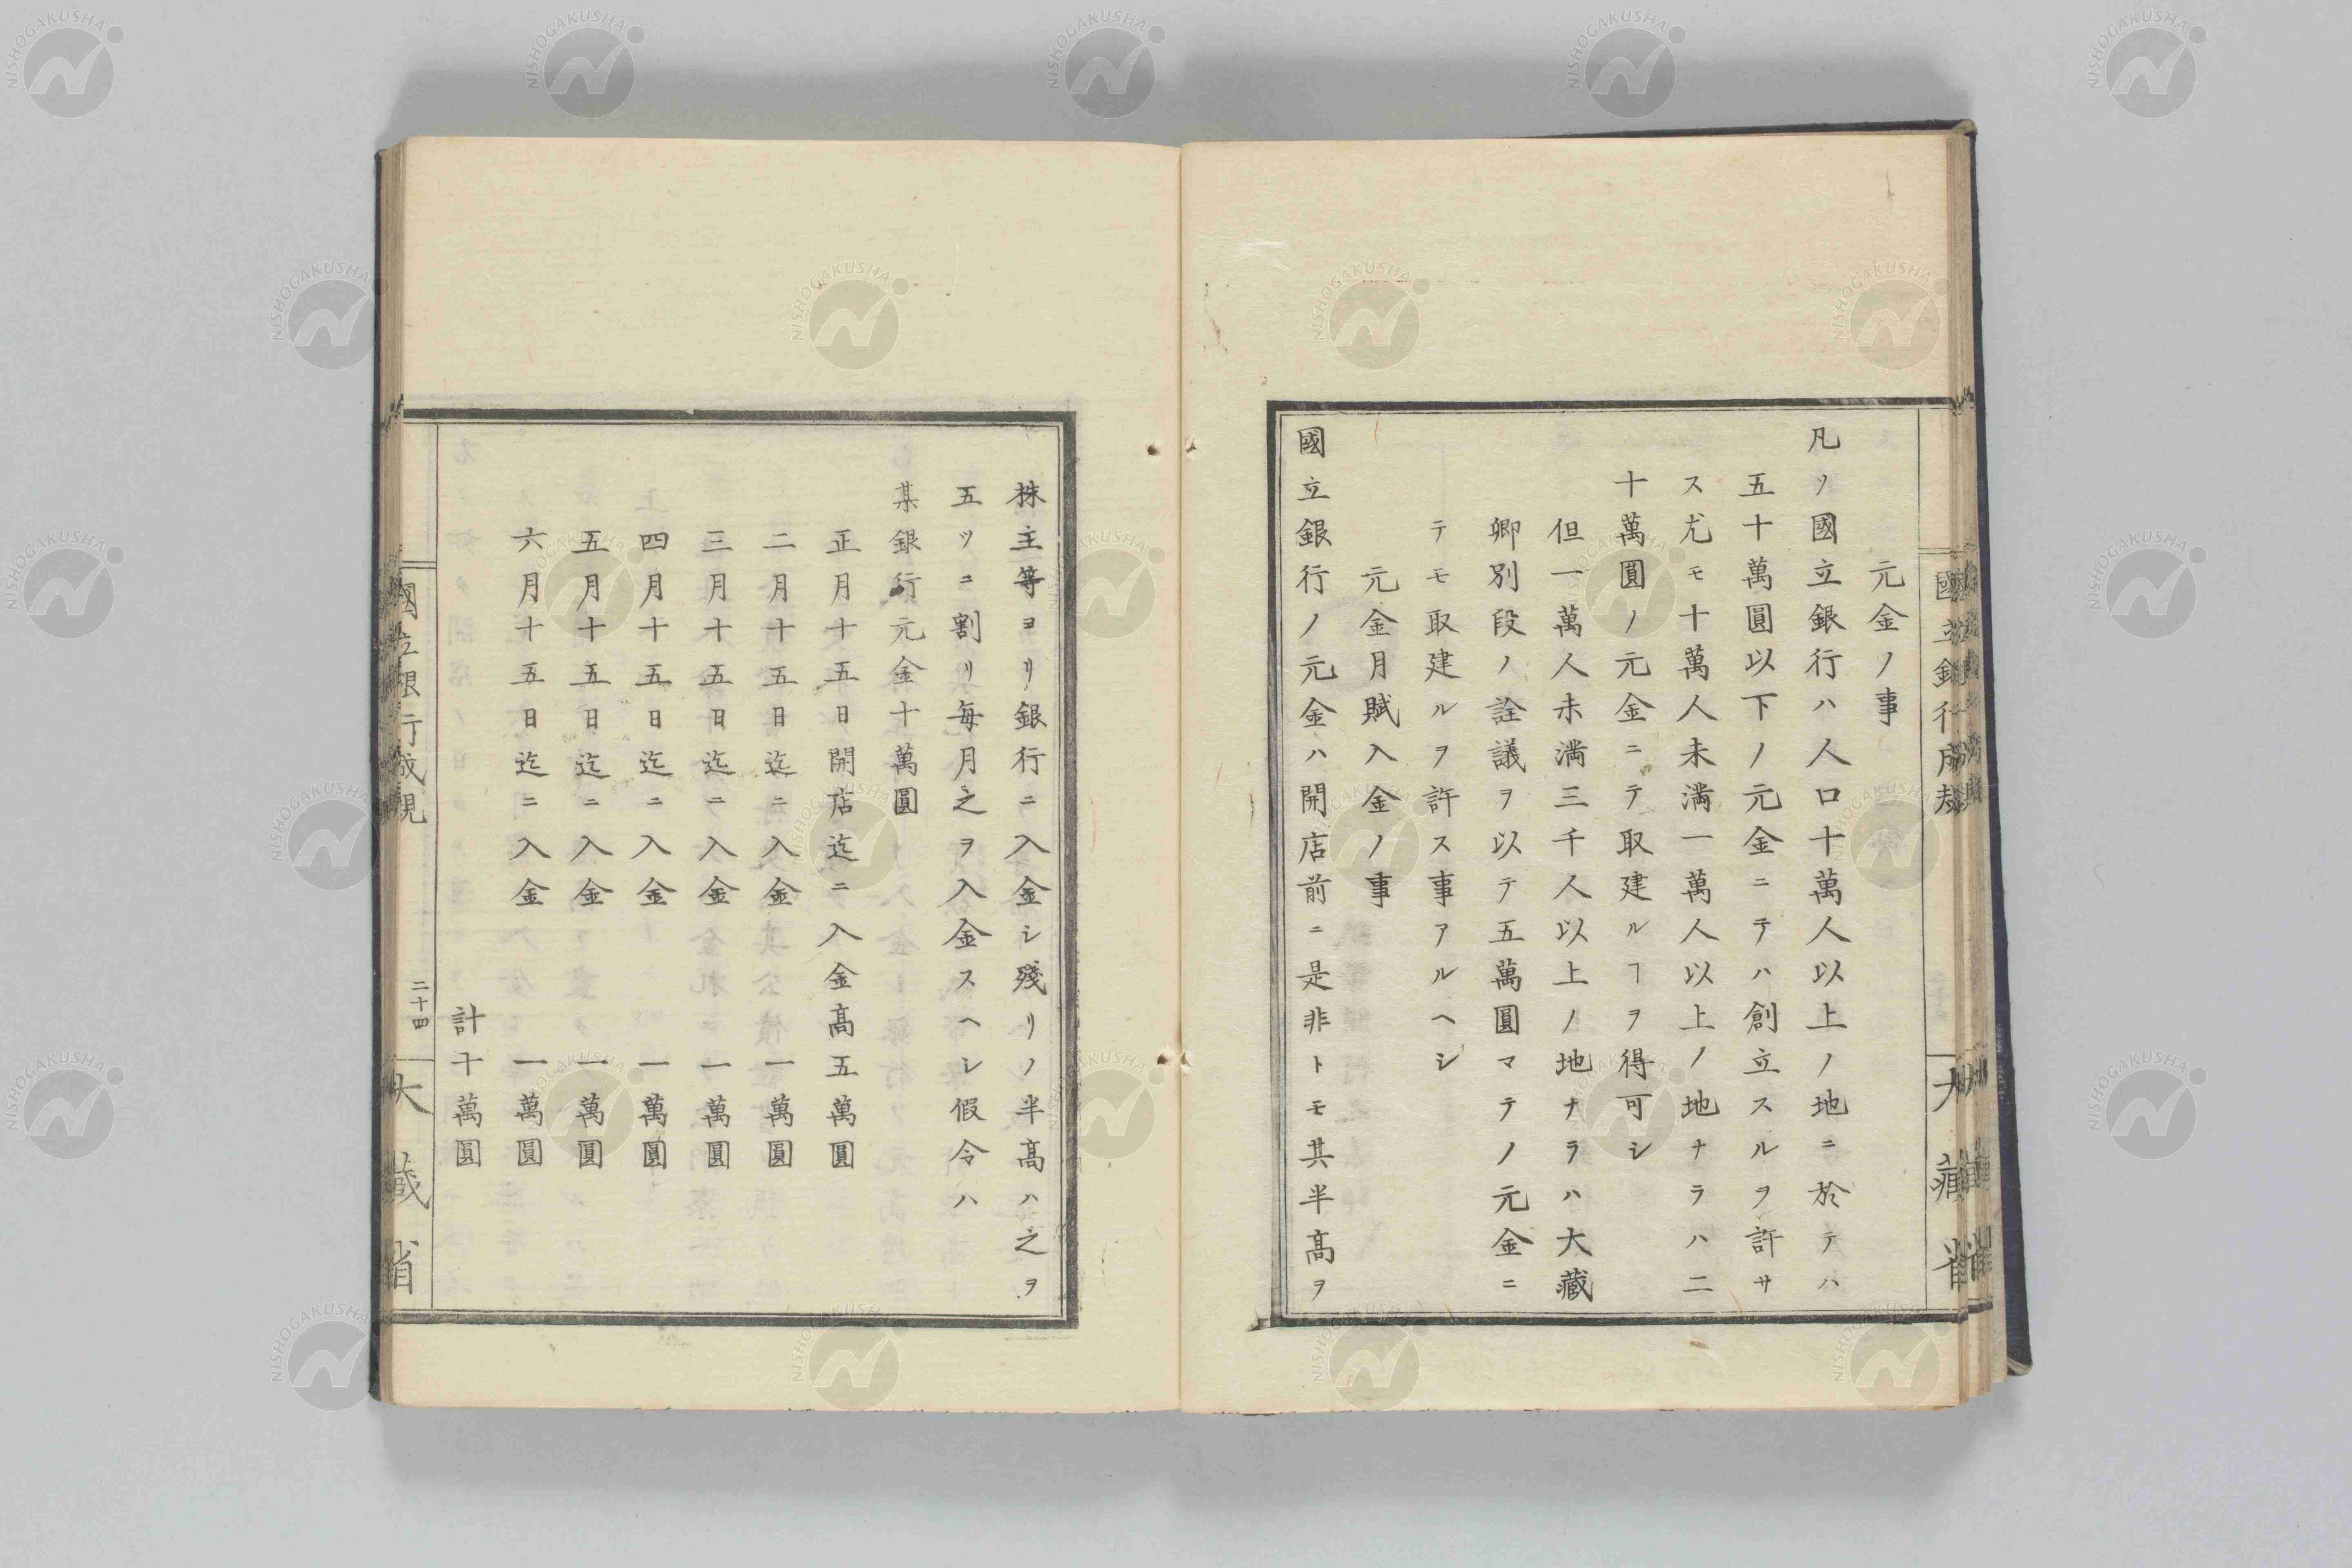 元金ノ事
凡ソ國立銀行ハ人口十萬人以上ノ地ニ於テハ
五十萬圓以下ノ元金ニテハ創立スルヲ許サ
ス尤モ十萬人未満一萬人以上ノ地ナラハ二
十萬圓ノ元金ニテ取建ルヿヲ得可シ
但一萬人未満三千人以上ノ地ナラハ大藏
卿別段ノ詮議ヲ以テ五萬圓マテノ元金ニ
テモ取建ルヲ許ス事アルヘシ
元金月賦入金ノ事
國立銀行ノ元金ハ開店前ニ是非トモ其半髙ヲ
株主等ヨリ銀行ニ入金シ殘リノ半髙ハ之ヲ
五ツニ割リ毎月之ヲ入金スヘシ假令ハ
某銀行元金十萬圓
正月十五日開店迄ニ入金髙五萬圓
二月十五日迄ニ入金一萬圓
三月十五日迄ニ入金一萬圓
四月十五日迄ニ入金一萬圓
五月十五日迄ニ入金一萬圓
六月十五日迄ニ入金一萬圓
計十萬圓
國立銀行成規
二十四
大藏省
NISHOGAKUSHA